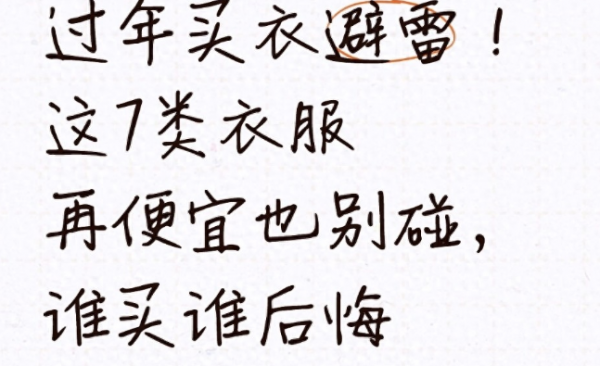 过年买衣避雷！
这7类衣服
再便宜也别碰，
谁买谁后悔